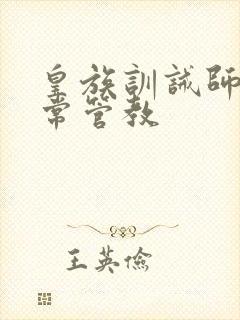 皇族訓誡師日
常管教
王英儉